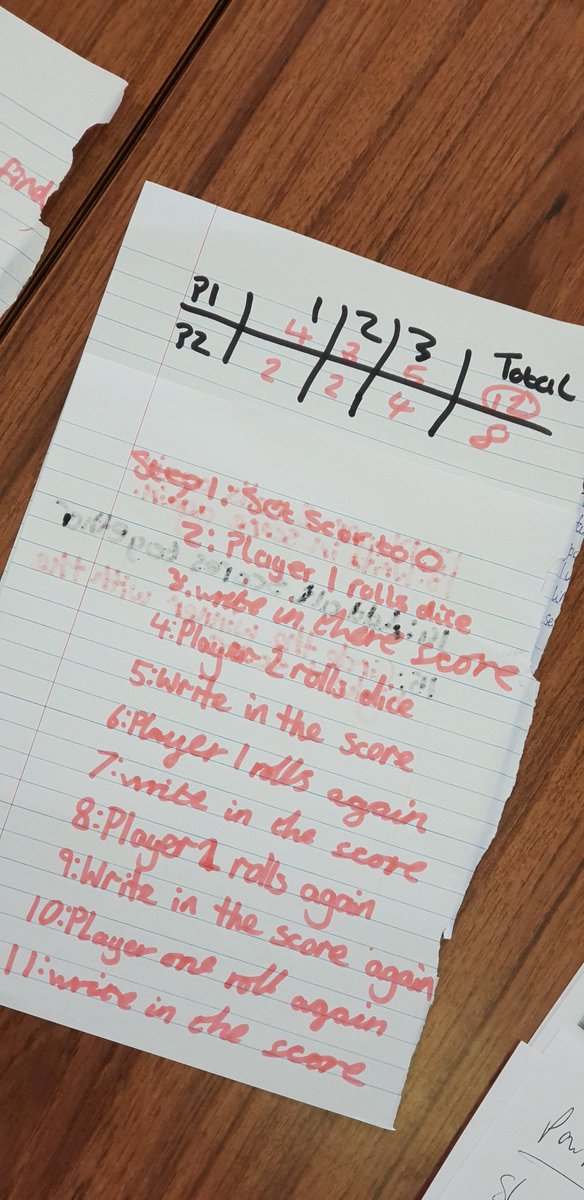 find
P1 1 2 3 Total
4 3 5 12
P2 2 2 4 8
Step 1: Set Scor to 0
2: Player 1 rolls dice
3: write in there score
4: Player 2 rolls dice
5: Write in the score
6: Player 1 rolls again
7: write in the score
8: Player 2 rolls again
9: Write in the score again
10: Player one roll again
11: write in the score